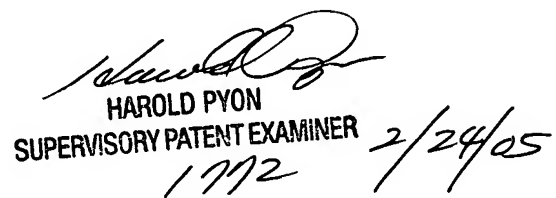 Harold Pyon
HAROLD PYON
SUPERVISORY PATENT EXAMINER
1772
2/24/05